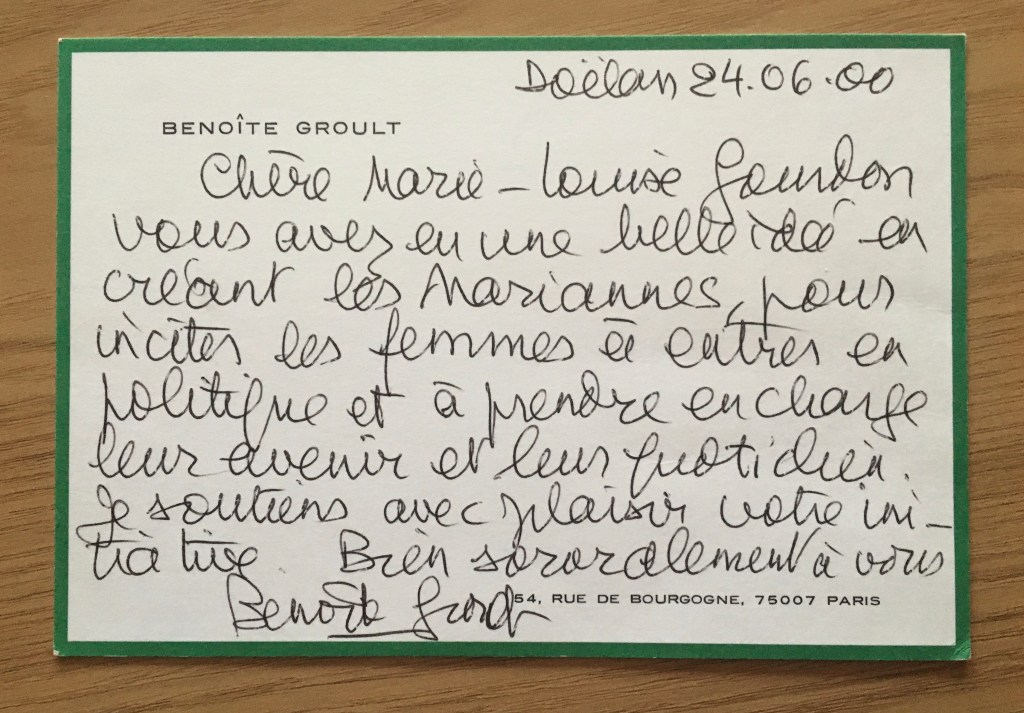 Doëlan 24.06.00
BENOÎTE GROULT
Chère Marie-Louise Gourdon
vous avez eu une belle idée en
créant les Mariannes, pour
inciter les femmes à entrer en
politique et à prendre en charge
leur avenir et leur quotidien.
Je soutiens avec plaisir votre ini-
tiative. Bien sororalement à vous
Benoîte Groult
54, RUE DE BOURGOGNE, 75007 PARIS